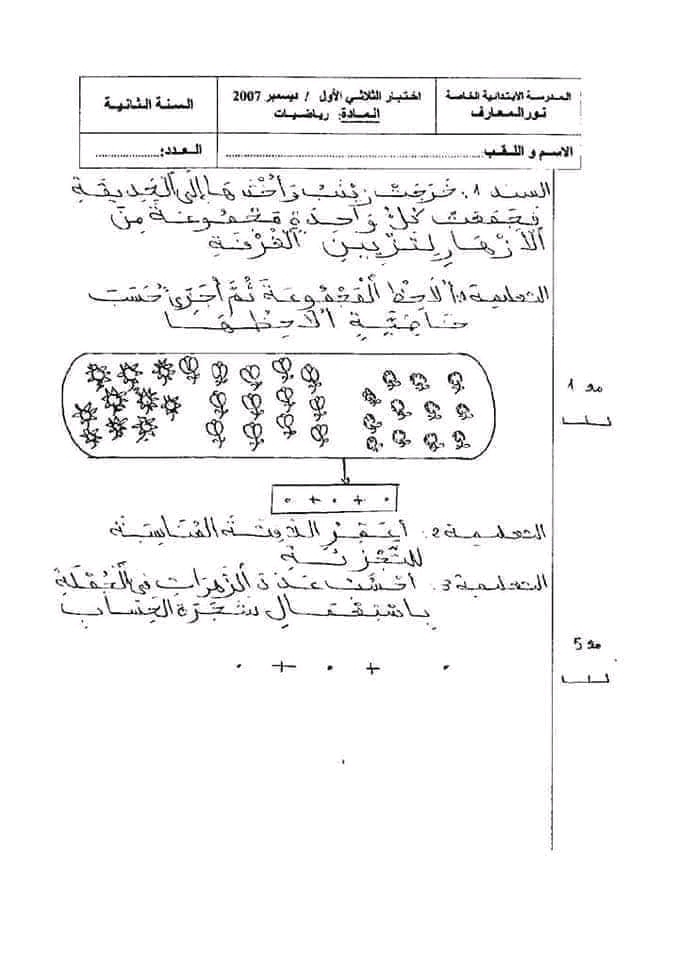 المدرسة الابتدائية الخاصة
نور المعارف
اختبار الثلاثي الأول / ديسمبر 2007
المادة: رياضيات
السنة الثانية
الاسم و اللقب: ........................................
العدد: ....................
السند 1: خَرَجَتْ زَيْنَبُ وَأُخْتُهَا إِلَى الْحَدِيقَةِ
فَجَمَعَتْ كُلُّ وَاحِدَةٍ مَجْمُوعَةً مِنَ
الْأَزْهَارِ لِتَزْيِينِ الْغُرْفَةِ
التعليمة 1: أُلَاحِظُ الْمَجْمُوعَةَ ثُمَّ أُجَزِّئُ حَسَبَ
خَاصِّيَّةٍ أُلَاحِظُهَا
مع 1
. + . + .
التعليمة 2: أُعَمِّرُ الْكِتَابَةَ الْمُنَاسِبَةَ
لِلتَّجْزِئَةِ
التعليمة 3: أَحْسُبُ عَدَدَ الزَّهَرَاتِ فِي الْجُمْلَةِ
بِاسْتِعْمَالِ شَجَرَةِ الْحِسَابِ
مع 5
. + . + .